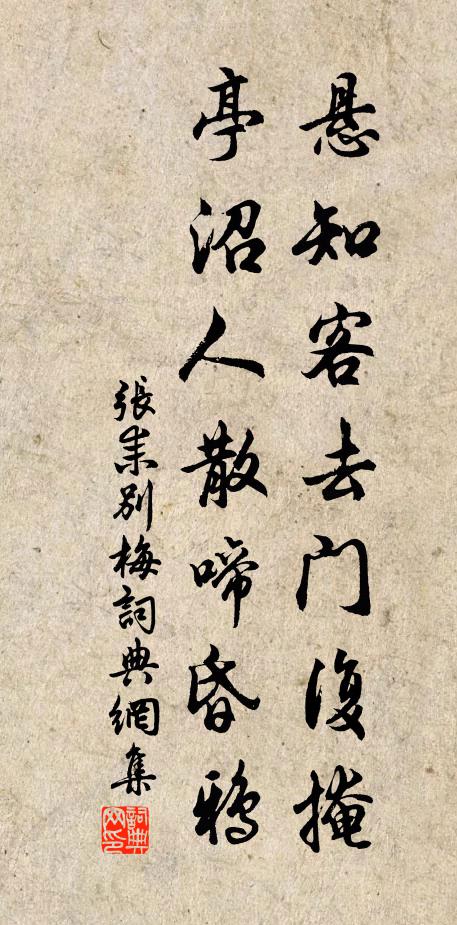 悬知客去门復掩
亭沼人散啼昏鸦
張耒別梅詞典網集
詞典网印